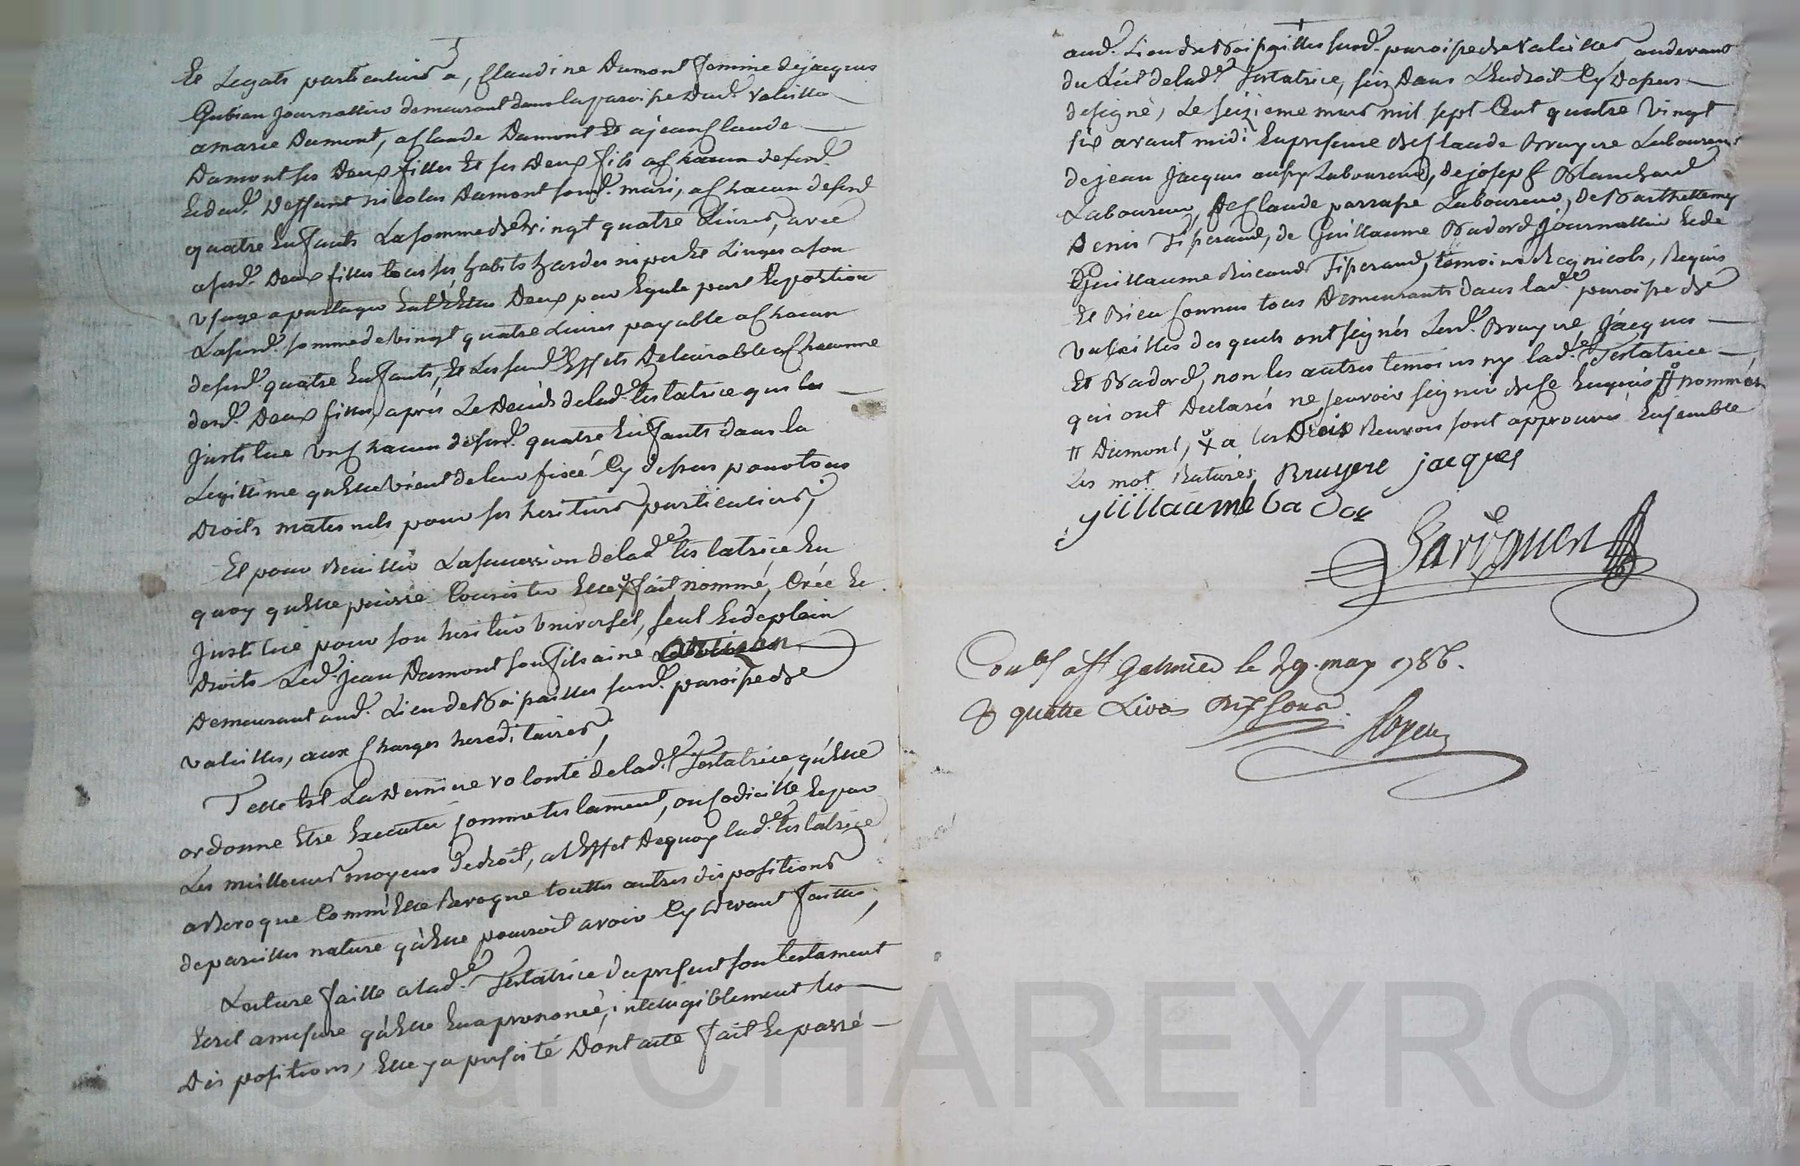 et Legats particuliers a, Claudine Dumont femme de jacques
Gubian journallier demeurant dans la paroisse dud.t valeille
a marie Dumont, a Claude Dumont et a jean Claude
Dumont ses deux filles et ses deux fils a chacun desesd.
et dud. deffunt nicolas Dumont sond. mari, a chacun desesd
quatre Enfants La somme de vingt quatre Livres, avec
a sesd. deux filles tous ses habits hardes nipes et Linges a son
usage a partager Entre Elles deux par Egale part et portion
Lasusd. somme de vingt quatre Livres payable a chacun
desesd. quatre Enfants, et Lessusd. Effets delivrable a chacunne
desd. deux filles, apres Le deces de lad.e testatrice qui les
jnstitue un chacun desesd. quatre Enfants dans la
Legitime qu'elle vient de leur fixé Cy dessus pour tous
Droits maternels pour ses heritiers particuliers,
Et pour Recuillir La succession de lad.e testatrice En
quoy qu'elle puisse Consister Elle fait nommé, Crée et
jnstitue pour son heritier universel, seul et de plein
droits Led. jean Dumont son fils ainé
demeurant aud. Lieu de Boispailles susd. paroisse de
valeilles, aux charges hereditaires,
Telle est La derniere volonté de lad.e Testatrice qu'elle
ordonne Etre Executée comme testament, ou codicille et par
Les meilleurs moyens de droit, a l'Effet de quoy lad.e testatrice
a Revoque Comm'elle Revoque touttes autres dispositions
de pareilles nature qu'elle pourroit avoir Cy devant faittes,
Lecture faitte a lad.e Testatrice du present son testament
Ecrit a mesure qu'elle En a prononcé, intelligiblement les
dispositions, Elle y a persisté dont acte fait et passé
aud. Lieu de Boispailles susd. paroisse de valeilles, au devant
du Lict de lad.e Testatrice, sis dans L'Endroit Cy dessus
designé, Le seizieme mars mil sept Cent quatre vingt
six avant midi En presence de Claude Bruyere Laboureur
de jean jacques aussy Laboureur, de joseph Blanchard
Laboureur, de Claude parrasse Laboureur, de Barthellemy
Denis Tisserand, de Guillaume Badord journallier et de
Guillaume Tisserand, temoins Regnicols, Requis
et bien Connus tous demeurants dans lad.e paroisse de
valeilles desquels ont signés Lesd. Bruyere, jacques
et Badord, non les autres temoins ny lad.e Testatrice
qui ont declarés ne scavoir signer de ce Enquis # nommés
# Dumont, x a Les trois Renvois sont approuvés Ensemble
Les mot Raturés, Bruyere jacques
guillaume bador
Con.lé aff Gelmier le 29 may 1786.
quatre Livres dix sous.
CHAREYRON